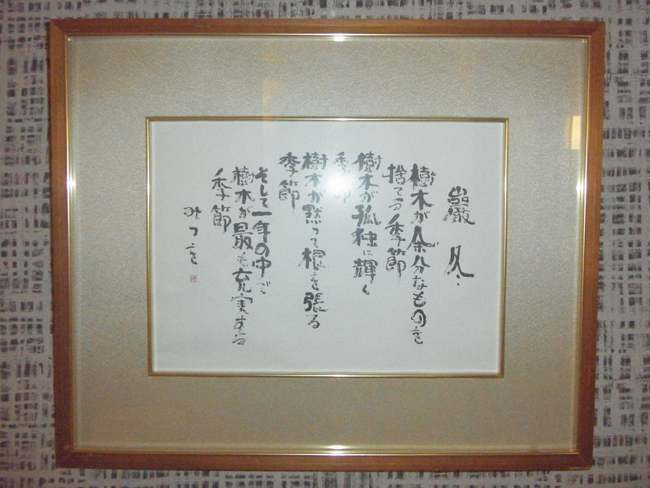 厳冬
樹木が余分なものを
捨てる季節
樹木が孤独に輝く
季節
樹木が黙って根を張る
季節
そして一年の中で
樹木が最も充実する
季節